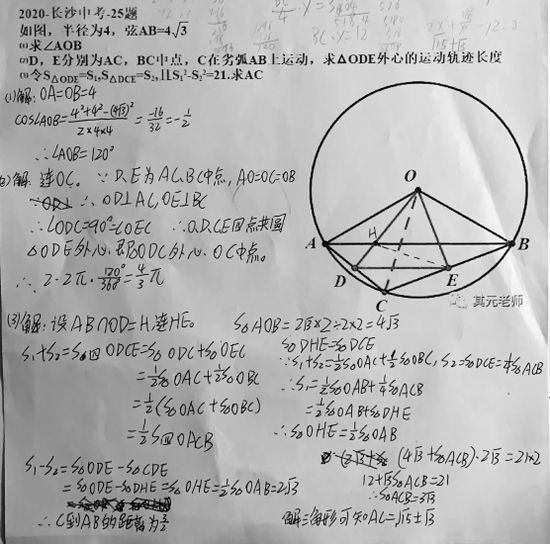 2020-长沙中考-25题
如图，半径为4，弦AB=4√3
⑴求∠AOB
⑵D，E分别为AC，BC中点，C在劣弧AB上运动，求△ODE外心的运动轨迹长度
⑶令S△ODE=S₁,S△DCE=S₂,且S₁²-S₂²=21.求AC
(1)解:OA=OB=4
COS∠AOB=(4²+4²-(4√3)²)/(2×4×4)=-16/32=-1/2
∴∠AOB=120°
(2)解:连OC。∵D、E为AC、BC中点,AO=OC=OB
∴OD⊥AC,OE⊥BC
∴∠ODC=90°=∠OEC ∴O.D.C.E四点共圆
△ODE外心,即△ODC外心,OC中点。
∴2·2π·120°/360°=4/3π
O
A
H
B
D
E
C
其元老师
(3)解:设AB∩OD=H.连HE。
S₁+S₂=S四ODCE=S△ODC+S△OEC
=1/2S△OAC+1/2S△OBC
=1/2(S△OAC+S△OBC)
=1/2S四OACB
S₁-S₂=S△ODE-S△CDE
=S△ODE-S△DHE=S△OHE=1/2S△OAB=2√3
∴C到AB的距离为3/2
S△AOB=2√3×2÷2×2=4√3
S△DHE=S△DCE
∵S₁+S₂=1/2S△OAC+1/2S△OBC,S₂=S△DCE=1/4S△ACB
∴S₁=1/2S△OAB+1/4S△ACB
=1/2S△OAB+S△DHE
∴S△OHE=1/2S△OAB
(4√3+S△ACB)·2√3=21×2
12+√3S△ACB=21
∴S△ACB=3√3
解三角形可知AC=√15±√3